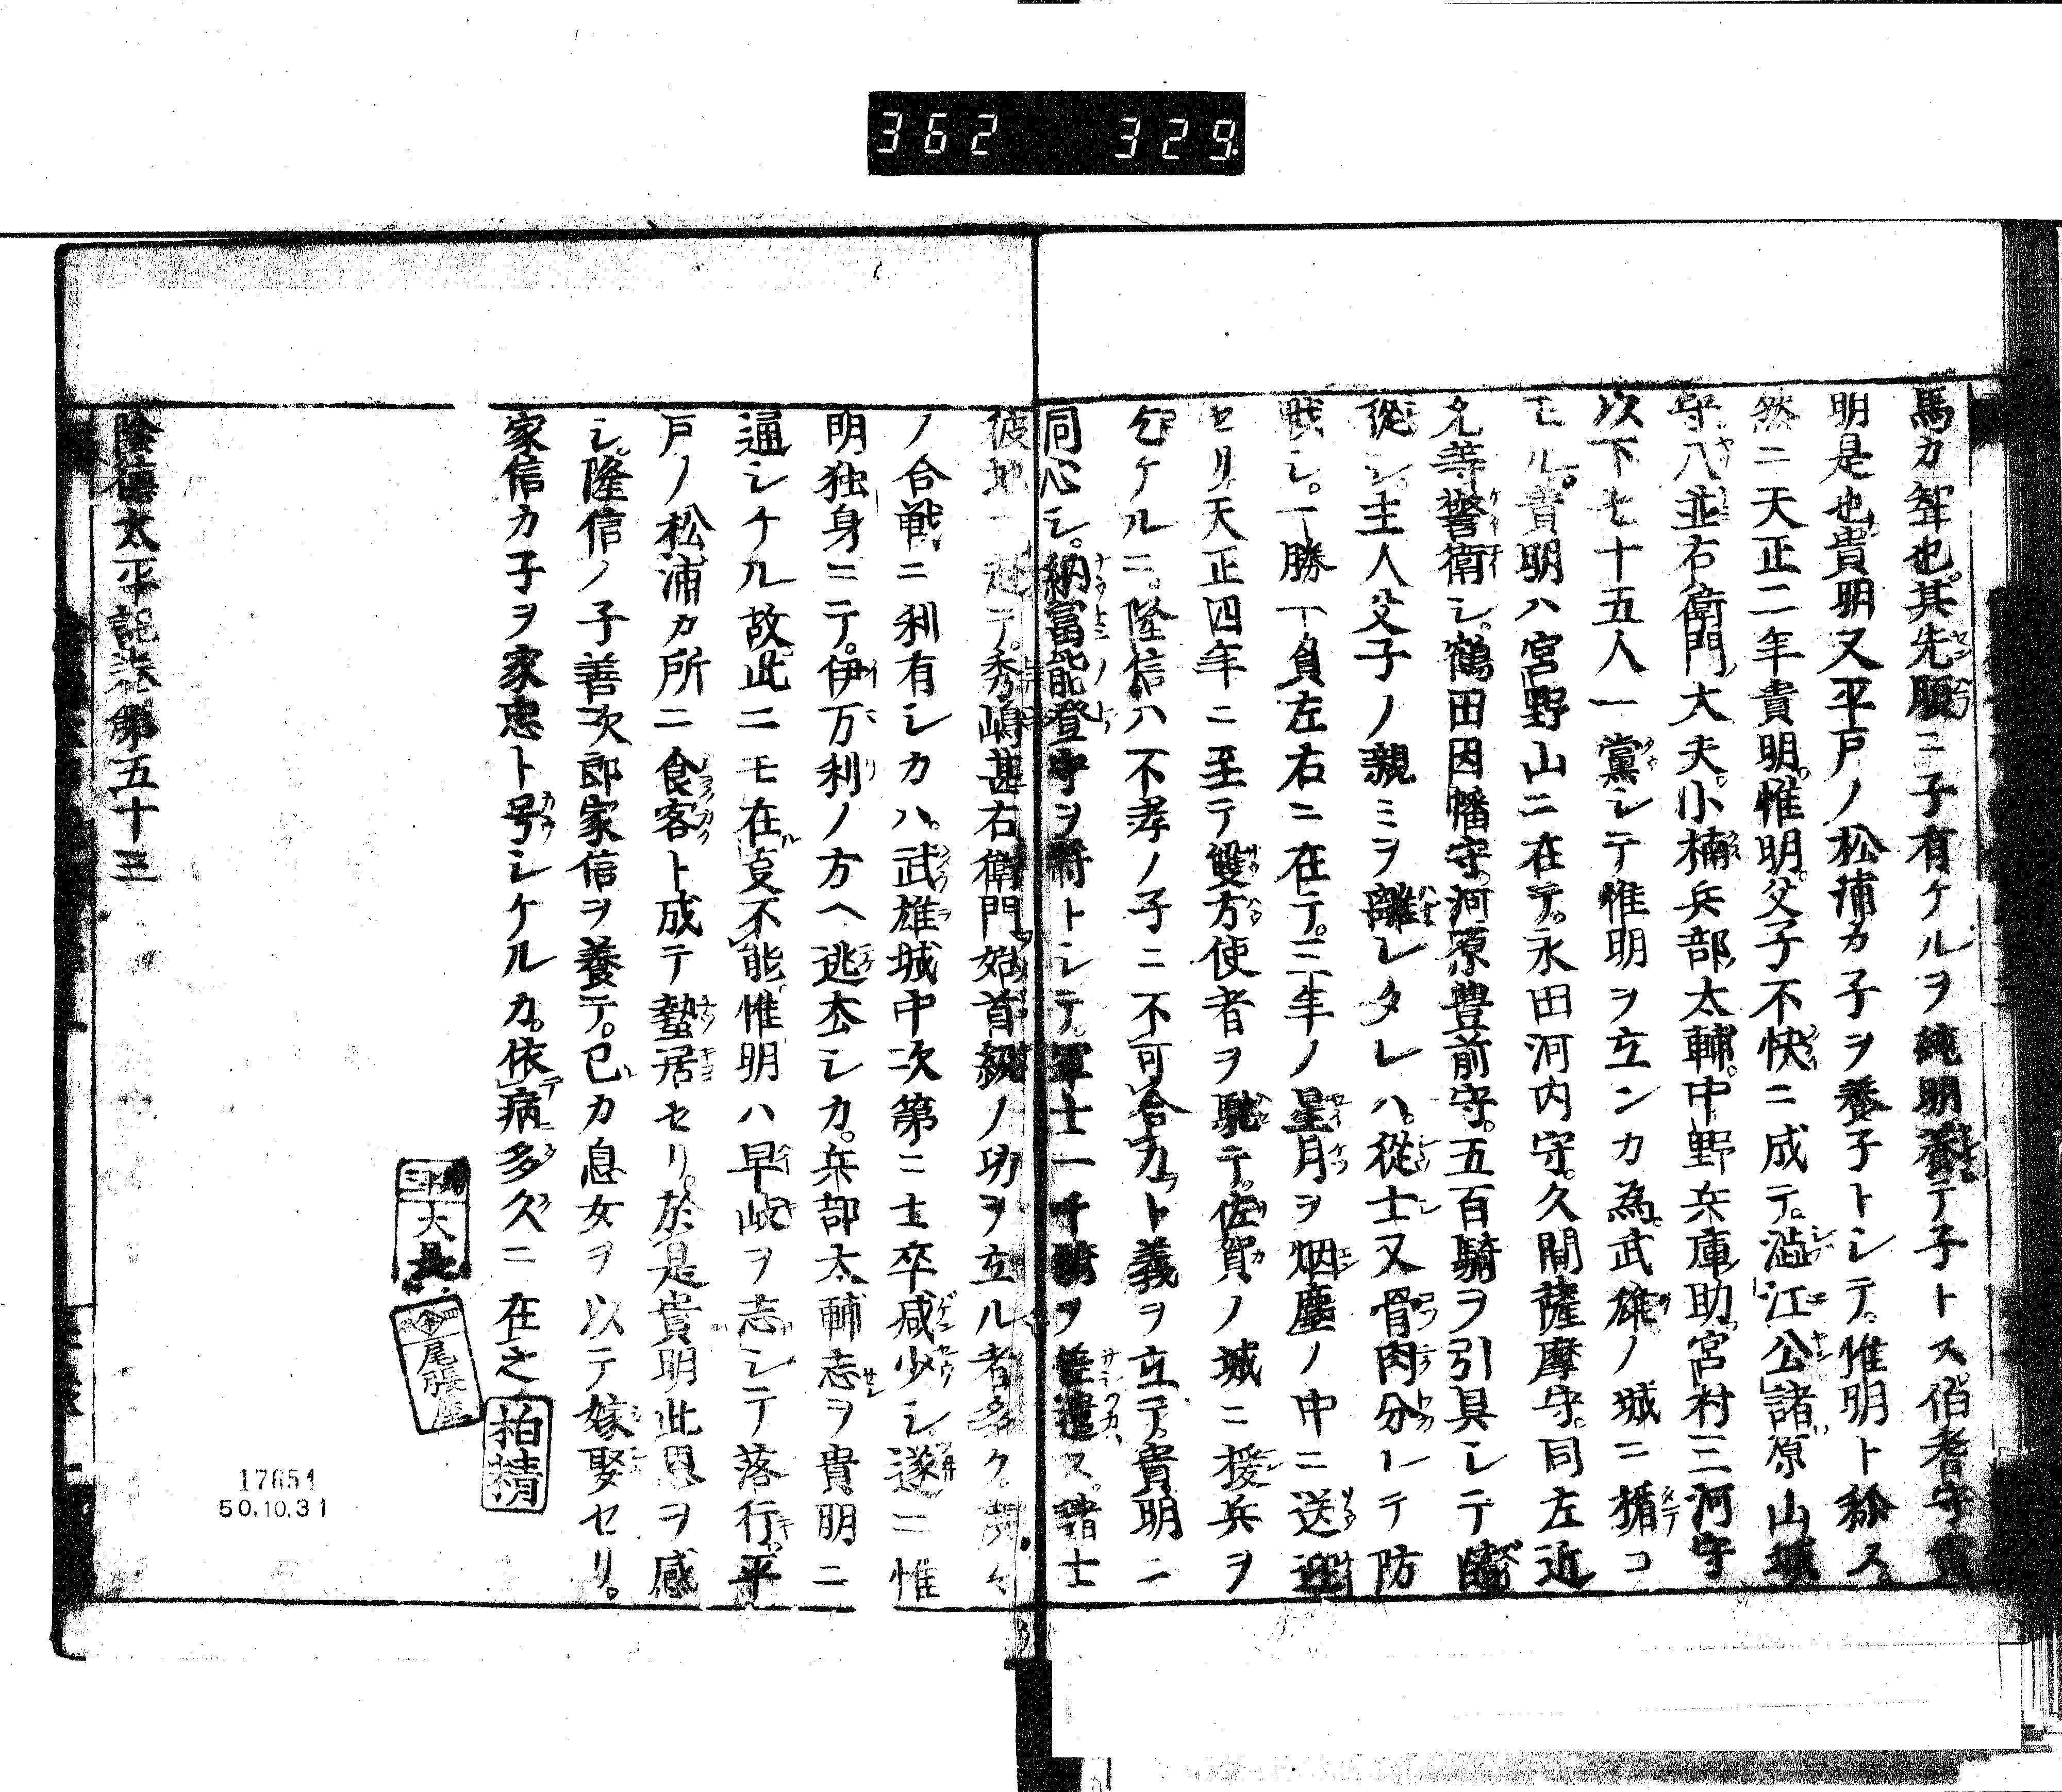 362 329.
馬カ聟也。其先腹ニ子有ケルヲ純明養テ子トス伯耆守貴
明是也貴明又平戸ノ松浦カ子ヲ養子トシテ。惟明ト称ス。
然ニ天正二年貴明。惟明。父子不快ニ成テ。澁江公諸原山城
守八並右衛門大夫。小楠兵部太輔。中野兵庫助宮村三河守
以下七十五人一黨シテ惟明ヲ立ンカ為武雄ノ城ニ楯コ
モル。貴明ハ宮野山ニ在テ。永田河内守。久間薩摩守。同左近
允等警衛シ。鶴田因幡守河原豊前守。五百騎ヲ引具シテ
從シ主人父子ノ親ミヲ離レタレハ。從士又骨肉分レテ防
戦シ。一勝一負左右ニ在テ。三年ノ星月ヲ烟塵ノ中ニ送迎
セリ天正四年ニ至テ雙方使者ヲ馳テ。佐賀ノ城ニ援兵ヲ
乞ケルニ。隆信ハ不孝ノ子ニ不可合力ト義ヲ立テ。貴明ニ
同心シ。納富能登守ヲ将トシテ。軍士一千騎ヲ差遣ス。諸士
彼地テ。秀嶋甚右衛門始首級ノ功ヲ立ル者多ク
ノ合戦ニ利有シカハ。武雄城中次第ニ士卒減少シ遂ニ惟
明独身ニテ。伊万利ノ方ヘ迯去シカ。兵部太輔志ヲ貴明ニ
通シケル故此ニモ在夏不能惟明ハ早岐ヲ志シテ落行平
戸ノ松浦カ所ニ食客ト成テ蟄居セリ。於是貴明此恩ヲ感
シ。隆信ノ子善次郎家信ヲ養テ。己カ息女ヲ以テ嫁娶セリ。
家信カ子ヲ家忠ト号シケルカ。依病多久ニ在之
陰德太平記卷第五十三
大
尾張屋
柏清
17654
50.10.31